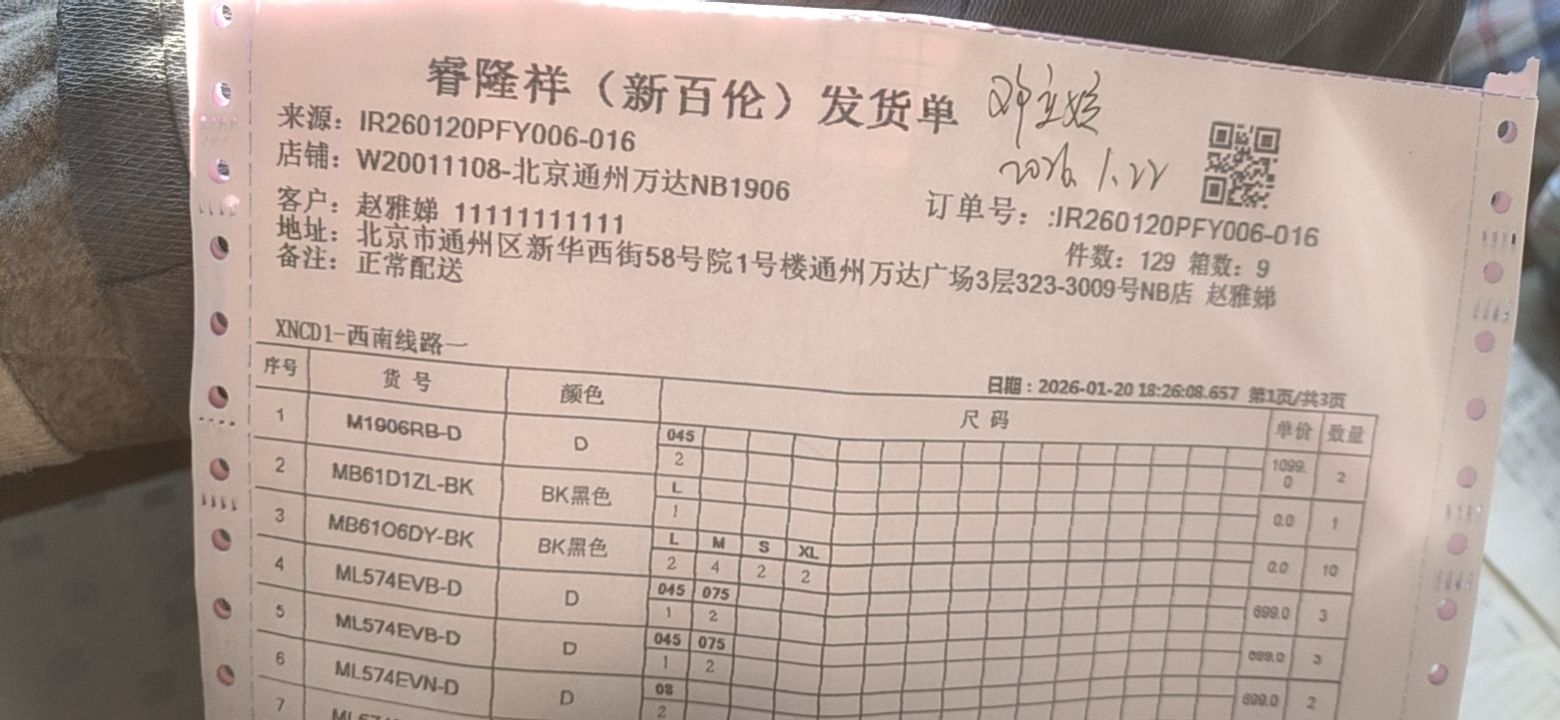 睿隆祥（新百伦）发货单
2026.1.22
来源：IR260120PFY006-016
店铺：W20011108-北京通州万达NB1906
订单号：:IR260120PFY006-016
客户：赵雅娣 11111111111
件数：129 箱数：9
地址：北京市通州区新华西街58号院1号楼通州万达广场3层323-3009号NB店 赵雅娣
备注：正常配送
XNCD1-西南线路一
日期：2026-01-20 18:26:08.657 第1页/共3页
序号 货号 颜色 尺码 单价 数量
1 M1906RB-D D 045 2 1099.0 2
2 MB61D1ZL-BK BK黑色 L 1 0.0 1
3 MB61O6DY-BK BK黑色 L M S XL 2 4 2 2 0.0 10
4 ML574EVB-D D 045 075 1 2 699.0 3
5 ML574EVB-D D 045 075 1 2 699.0 3
6 ML574EVN-D D 08 2 699.0 2
7